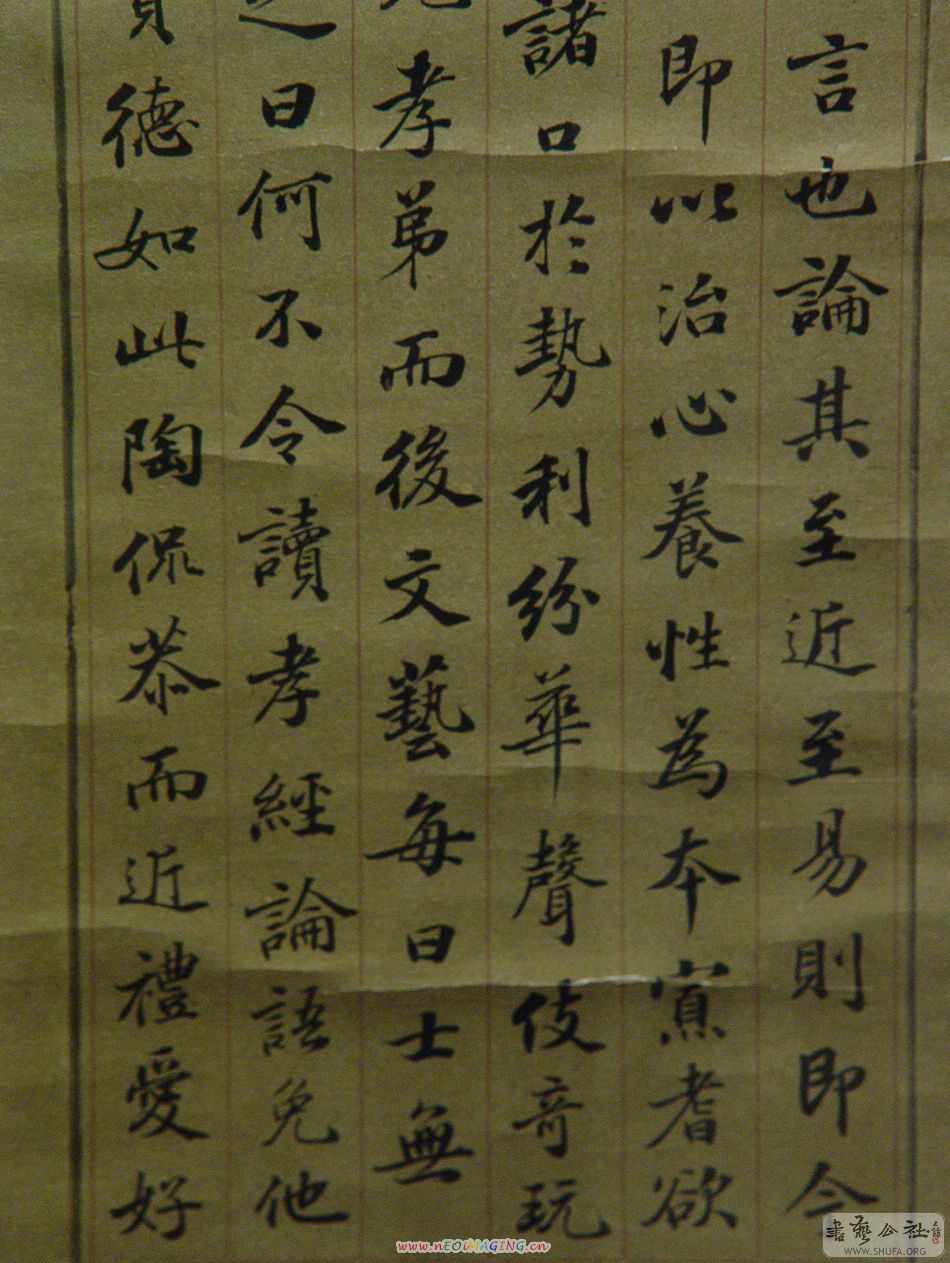 言也論其至近至易則即今
即以治心養性為本寡耆欲
諸口於勢利紛華聲伎奇玩
孝弟而後文藝每曰士無
之曰何不令讀孝經論語免他
德如此陶侃恭而近禮愛好
www.nEOiMAGING.cn
書藝公社
WWW.SHUFA.ORG